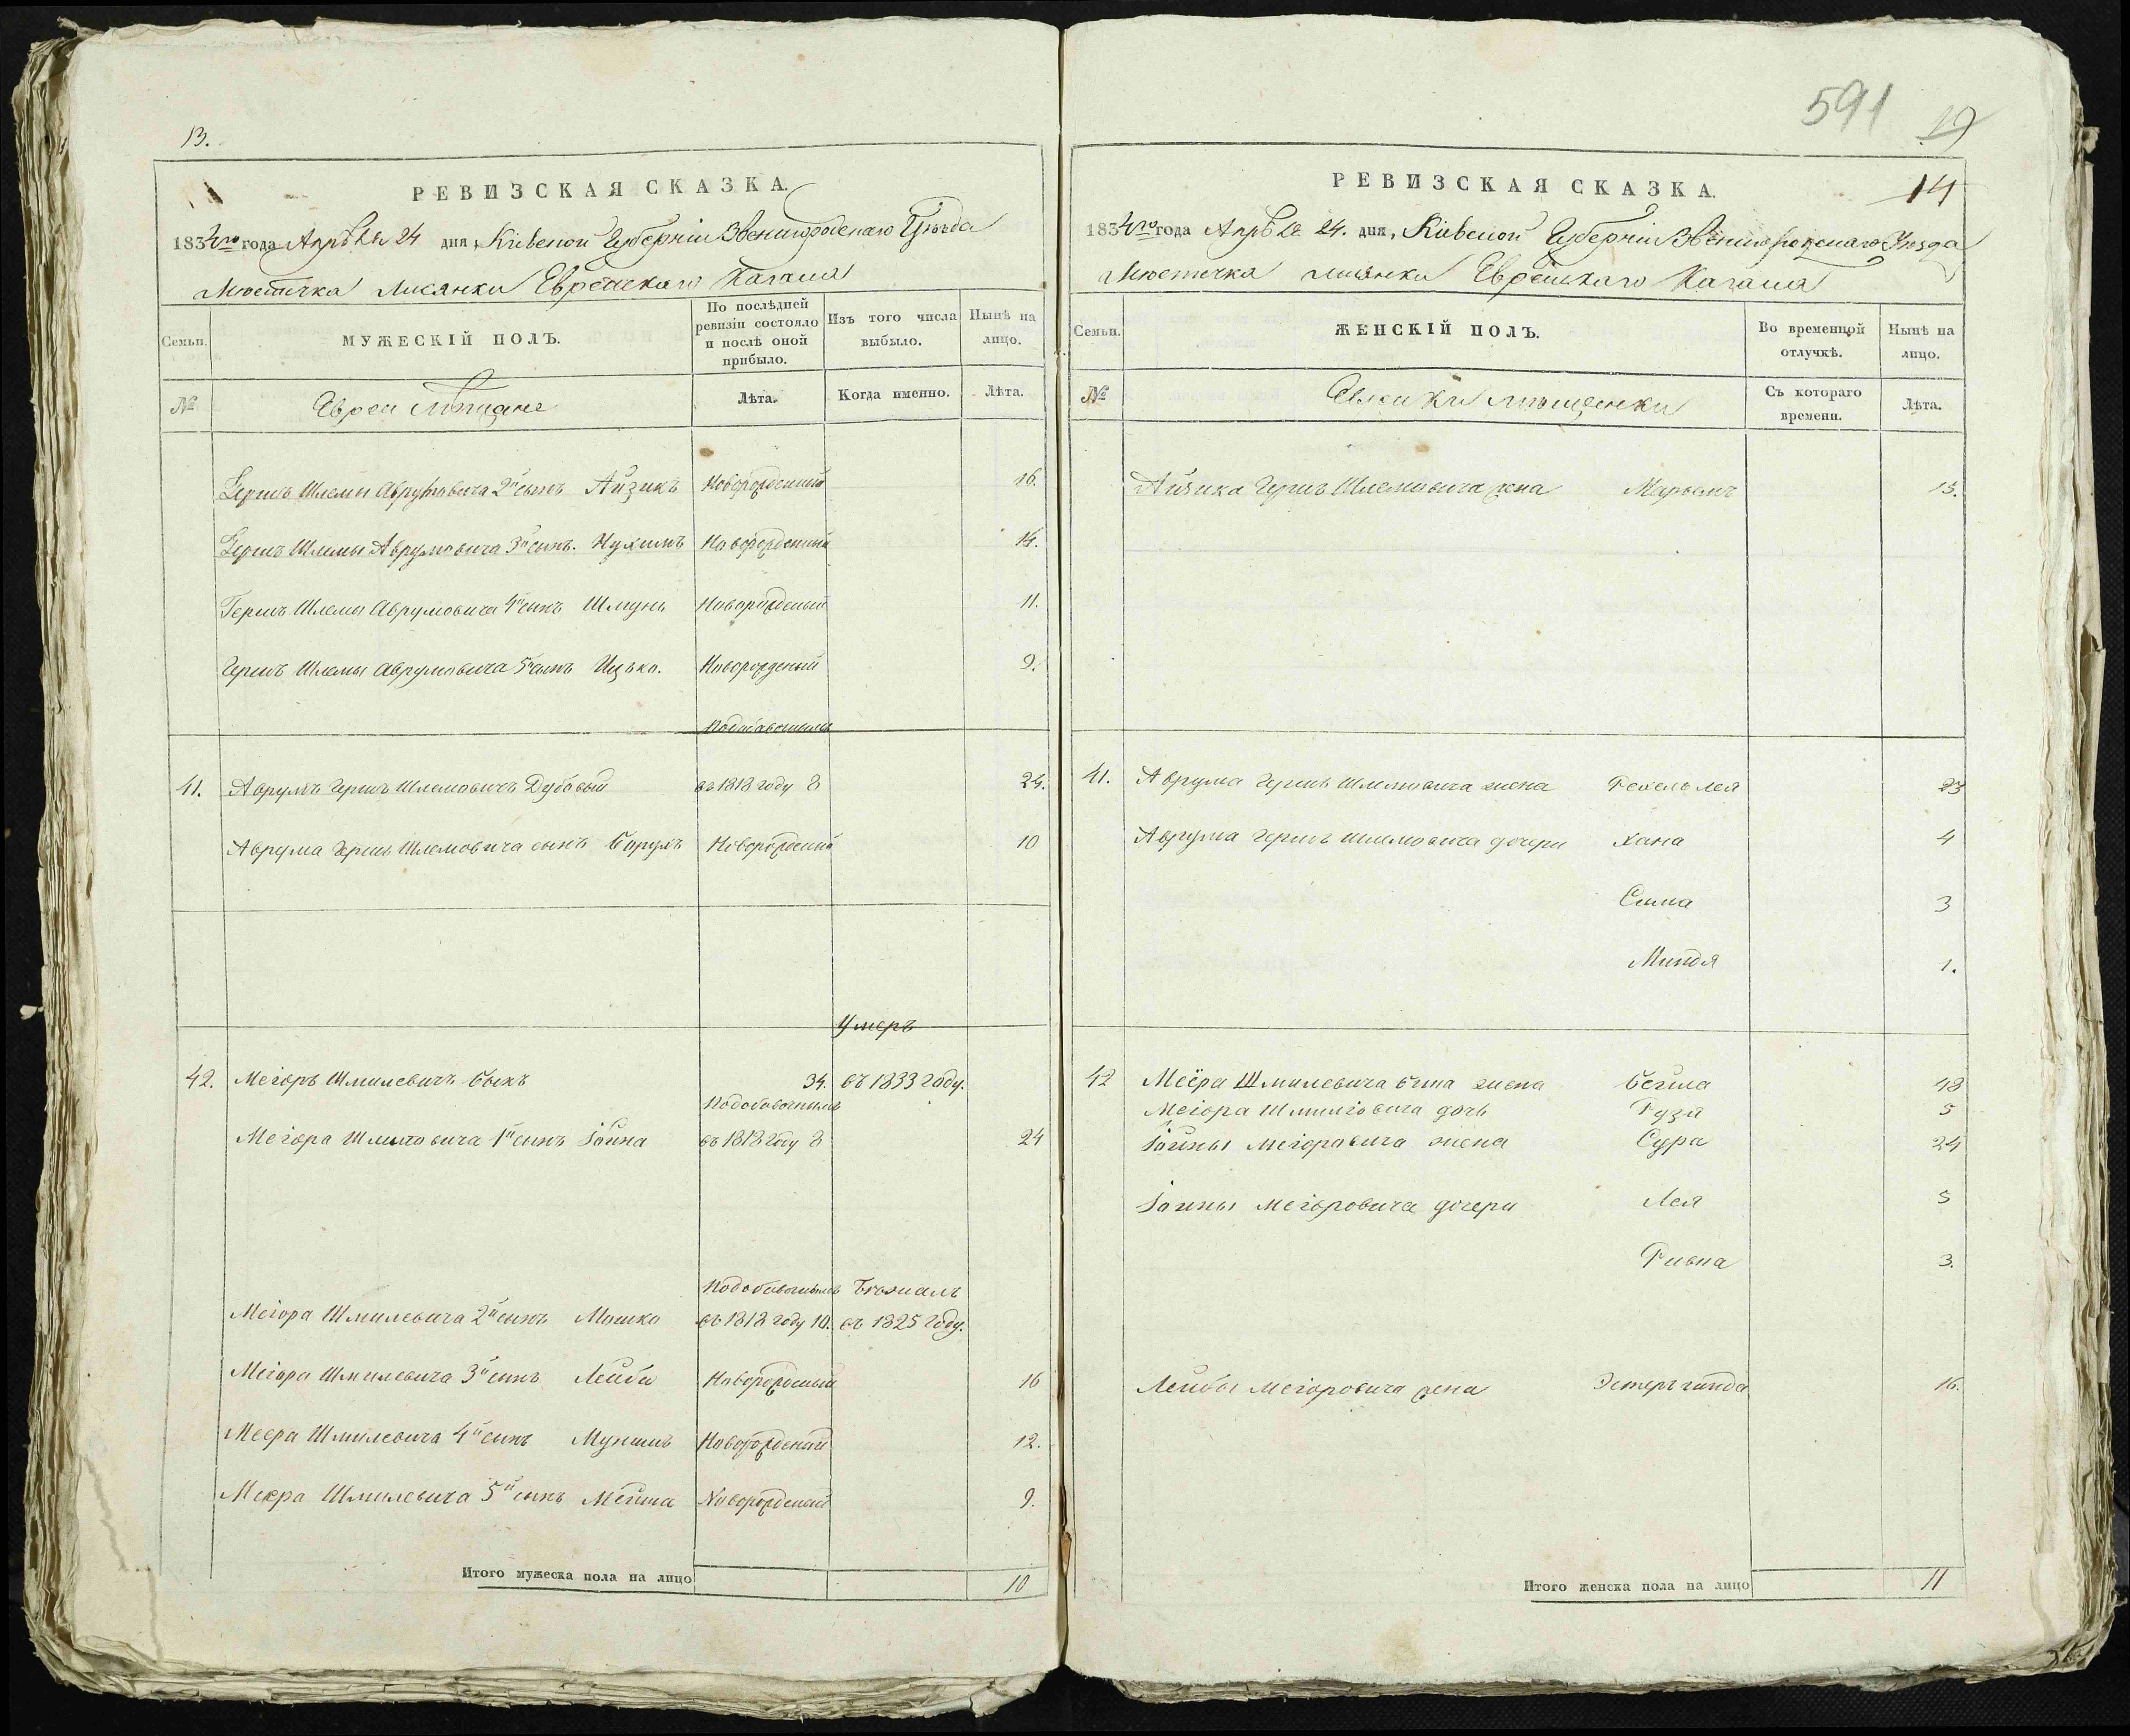 13.
РЕВИЗСКАЯ СКАЗКА.
1834го года Апрѣля 24 дня, Кіевской Губерніи Звенигородскаго Уѣзда
Мѣстечка Лисянки Еврейскаго Кагала
Семьи. МУЖЕСКІЙ ПОЛЪ. По послѣдней ревизіи состояло и послѣ оной прибыло. Изъ того числа выбыло. Нынѣ на лицо.
№ Евреи Мѣщане Лѣта. Когда именно. Лѣта.
Гершъ Шлемы Аврумовича 2й сынъ Айзикъ Новорожденный 16.
Гершъ Шлемы Аврумовича 3й сынъ. Нухимъ Новорожденный 14.
Гершъ Шлемы Аврумовича 4й сынъ Шмунь Новорожденый 11.
Гершъ Шлемы Аврумовича 5й сынъ Ицько. Новорожденый 9.
Подобавочнымъ
41. Аврумъ Гершъ Шлемовичъ Дубовый въ 1818 году 8 24.
Аврума Гершъ Шлемовича сынъ Сорулъ Новорожденый 10
Умеръ
42. Меіоръ Шмилевичъ Быкъ 34. въ 1833 году.
Подобавочнымъ
Меіора Шмилевича 1й сынъ Іойна въ 1818 году 8 24
Подобавочнымъ Бѣжалъ
Меіора Шмилевича 2й сынъ Мошко въ 1818 году 10. въ 1825 году.
Меіора Шмилевича 3й сынъ Лейба Новорожденый 16
Меера Шмилевича 4й сынъ Мунишъ Новорожденый 12.
Меера Шмилевича 5й сынъ Мейша Новорожденый 9.
Итого мужеска пола на лицо 10
591
19
14
РЕВИЗСКАЯ СКАЗКА.
1834го года Апрѣля 24. дня, Кіевской Губерніи Звенигородскаго Уѣзда
Мѣстечка Лисянки Еврейскаго Кагала
Семьи. ЖЕНСКІЙ ПОЛЪ. Во временной отлучкѣ. Нынѣ на лицо.
№ Еврейки мѣщанки Съ котораго времени. Лѣта.
Айзика Гершъ Шлемовича жена Марьемъ 15.
41. Аврума Гершъ Шлемовича жена Рехель Лея 23
Аврума Гершъ Шлемовича дочери Хана 4
Сима 3
Миндя 1.
42 Меера Шмилевича Быка жена Бейла 48
Меіора Шмилевича дочь Рузя 5
Іойны Меіоровича жена Сура 24
Іойны Меіоровича дочери Лея 5
Ривка 3.
Лейбы Меіоровича жена Эстеръ гинда 16.
Итого женска пола на лицо 11